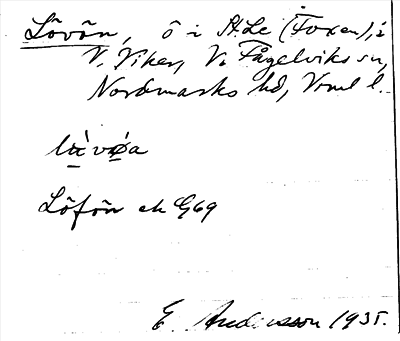 Lövön, ö i St. Le (Foxen), i
V. Viker, V. Fågelviks sn,
Nordmarks hd, Vrml l.
lɯ̀vøa
Löfön ek G69
E. Andersson 1935.